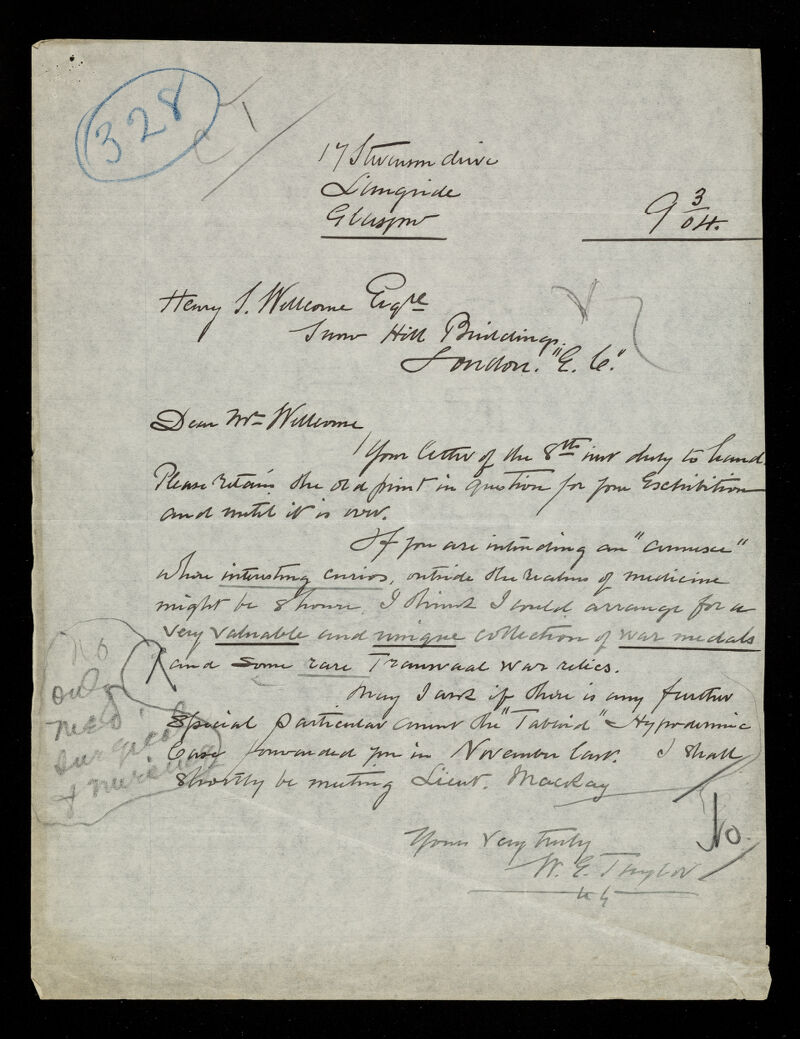 328
17 Stevenson drive
Langside
Glasgow
9 3/04.
Henry S. Wellcome Esqre
Snow Hill Buildings.
London. "E. C."
Dear Mr Wellcome
Your letter of the 8th inst duly to hand.
Please retain the old print in question for your Exhibition
and until it is over.
If you are intending an "annexe"
where interesting curios, outside the realms of medicine
might be shown, I think I could arrange for a
very valuable and unique collection of war medals
and some rare Transvaal war relics.
No
only
med
surgical
& nursing
May I ask if there is any further
special particular anent the "Tabloid" Hypodermic
Case forwarded you in November last. I shall
shortly be meeting Lieut. MacKay
No.
Yours very truly
W. E. Taylor